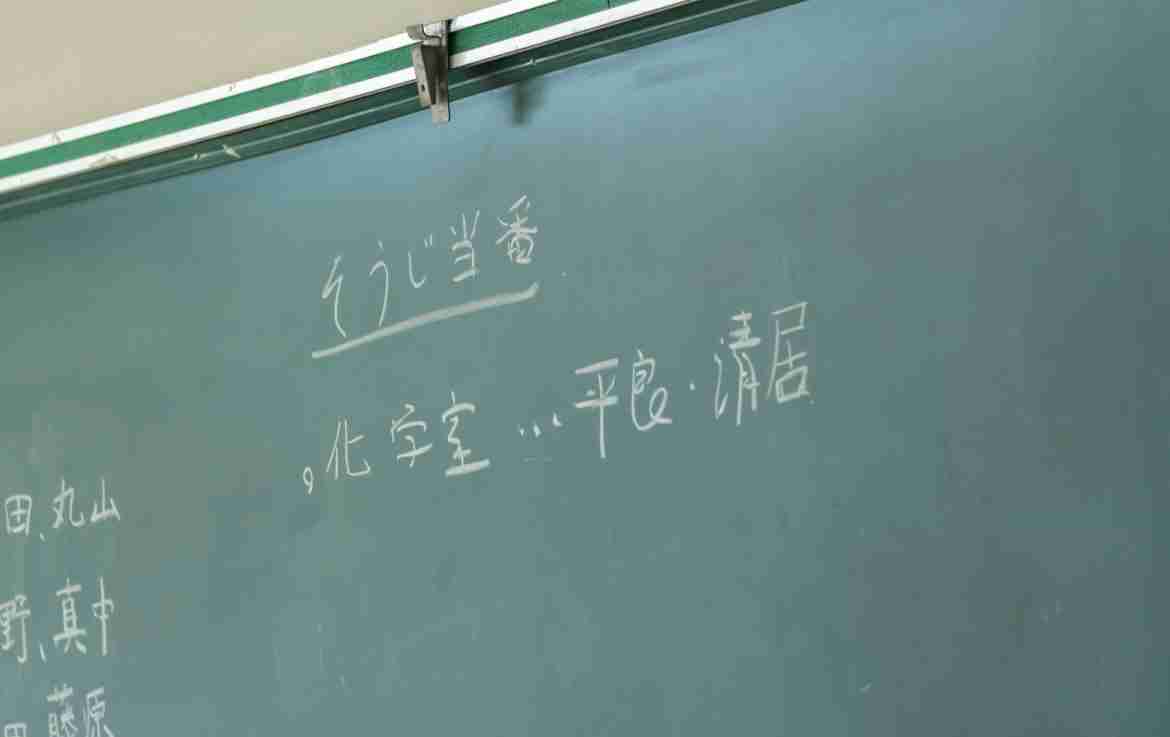 そうじ当番
,化学室…平良・清居
田、丸山
野、真中
田、藤原